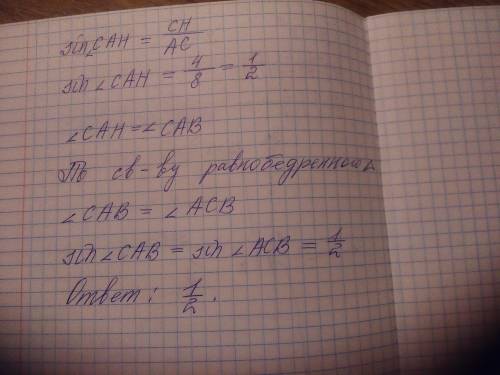 sin∠CAH = CH/AC
sin∠CAH = 4/8 = 1/2
∠CAH = ∠CAB
По св-ву равнобедренного △
∠CAB = ∠ACB
sin∠CAB = sin∠ACB = 1/2
Ответ: 1/2.